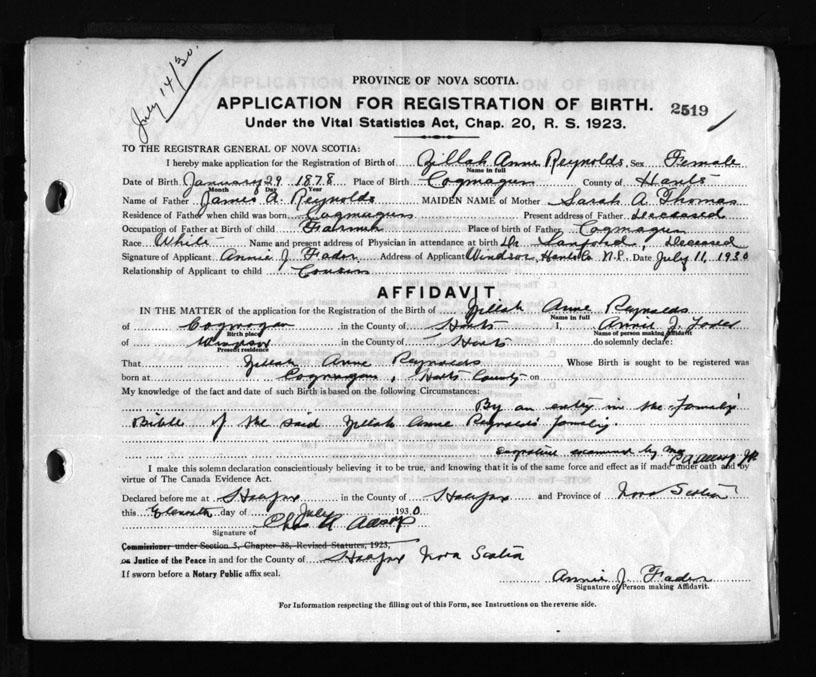 July 14/30.
PROVINCE OF NOVA SCOTIA.
APPLICATION FOR REGISTRATION OF BIRTH. 2519
Under the Vital Statistics Act, Chap. 20, R. S. 1923.
TO THE REGISTRAR GENERAL OF NOVA SCOTIA:
I hereby make application for the Registration of Birth of Zillah Anne Reynolds Sex Female
Name in full
Date of Birth January 29 1878 Place of Birth Cogmagun County of Hants
Month Day Year
Name of Father James A. Reynolds MAIDEN NAME of Mother Sarah A Thomas
Residence of Father when child was born Cogmagun Present address of Father deceased
Occupation of Father at Birth of child Farmer Place of birth of Father Cogmagun
Race White Name and present address of Physician in attendance at birth Dr. Sanford, Deceased
Signature of Applicant Annie J. Fader Address of Applicant Windsor, Hants Co N.S. Date July 11, 1930
Relationship of Applicant to child Cousin
AFFIDAVIT
IN THE MATTER of the application for the Registration of the Birth of Zillah Anne Reynolds
Name in full
of Cogmogan in the County of Hants I, Annie J. Fader
Birth place Name of person making affidavit
of Windsor in the County of Hants do solemnly declare:
Present residence
That Zillah Anne Reynolds Whose Birth is sought to be registered was
born at Cogmagun, Hants County on
My knowledge of the fact and date of such Birth is based on the following Circumstances:
By an entry in the family
Bible of the said Zillah Anne Reynolds family.
signature examined by me
I make this solemn declaration conscientiously believing it to be true, and knowing that it is of the same force and effect as if made under oath and by
virtue of The Canada Evidence Act.
Declared before me at Halifax in the County of Halifax and Province of Nova Scotia
this Eleventh day of July 1930
Signature of Chas R
Commissioner under Section 5, Chapter 38, Revised Statutes, 1923,
or Justice of the Peace in and for the County of Halifax Nova Scotia
If sworn before a Notary Public affix seal. Annie J. Fader
Signature of Person making Affidavit.
For Information respecting the filling out of this Form, see Instructions on the reverse side.